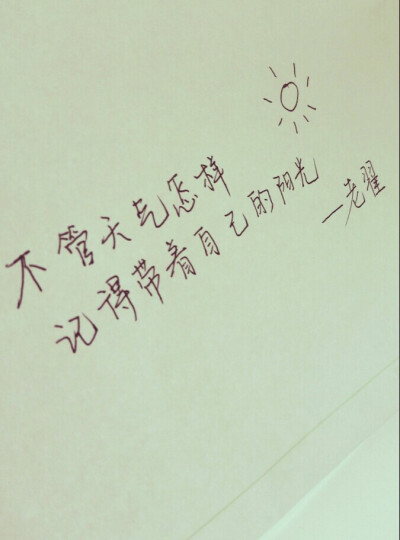 不管天气怎样
记得带着自己的阳光
—老翟